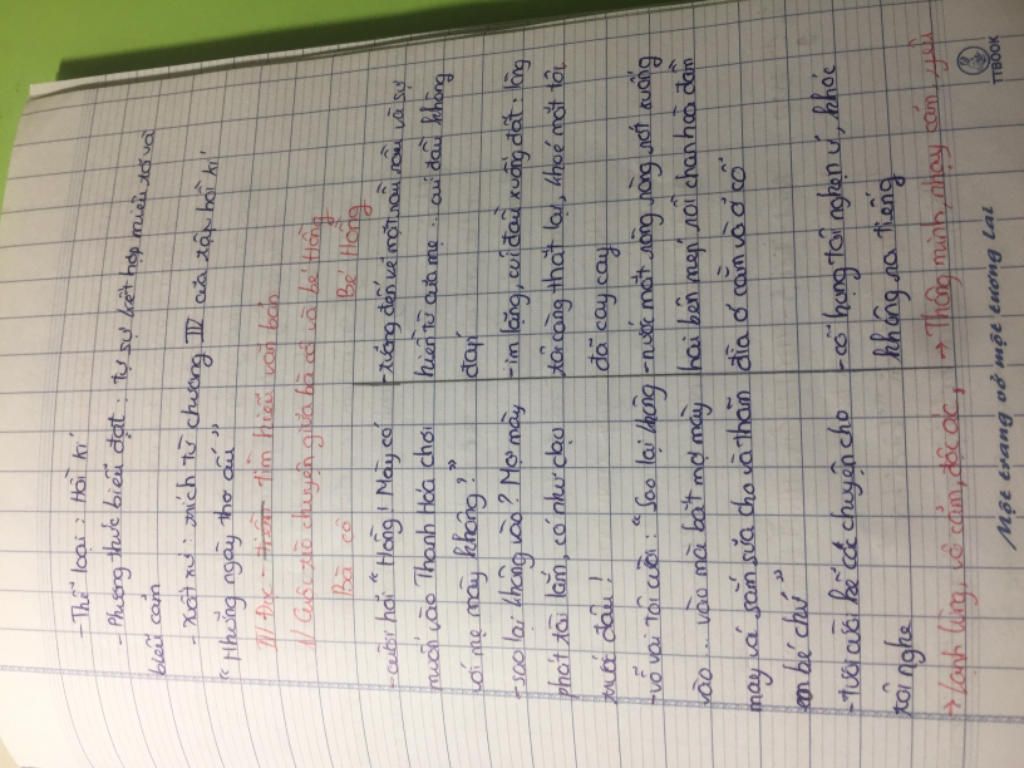 - Thể loại : Hồi kí
- Phương thức biểu đạt : tự sự kết hợp miêu tả và
biểu cảm
- Xuất xứ : trích từ chương III của tập hồi kí
" Những ngày thơ ấu "
II/ Đọc - tìm hiểu văn bản
1/ Cuộc trò chuyện giữa bà cô và bé Hồng
Bà cô
- cười hỏi " Hồng! Mày có
muốn vào Thanh Hóa chơi
với mẹ mày không? "
- sao lại không vào? Mợ mày
phát tài lắm, có như dạo
trước đâu!
- vỗ vai tôi cười : " Sao lại không
vào .. vào mà bắt mợ mày
may vá sắm sửa cho và thăm
em bé chứ "
- tươi cười kể các chuyện cho
tôi nghe
→ Lạnh lùng, vô cảm, độc ác,
Bé Hồng
- tưởng đến vẻ mặt rầu rầu và sự
hiền từ của mẹ .. cúi đầu không
đáp
- im lặng, cúi đầu xuống đất. lòng
tôi càng thắt lại, khoé mắt tôi
đã cay cay
- nước mắt ròng ròng rớt xuống
hai bên mép rồi chan hoà đầm
đìa ở cằm và ở cổ
- cổ họng tôi nghẹn ứ, khóc
không ra tiếng
→ Thông minh, nhạy cảm, yêu
Một trang vở một tương lai
TTBOOK